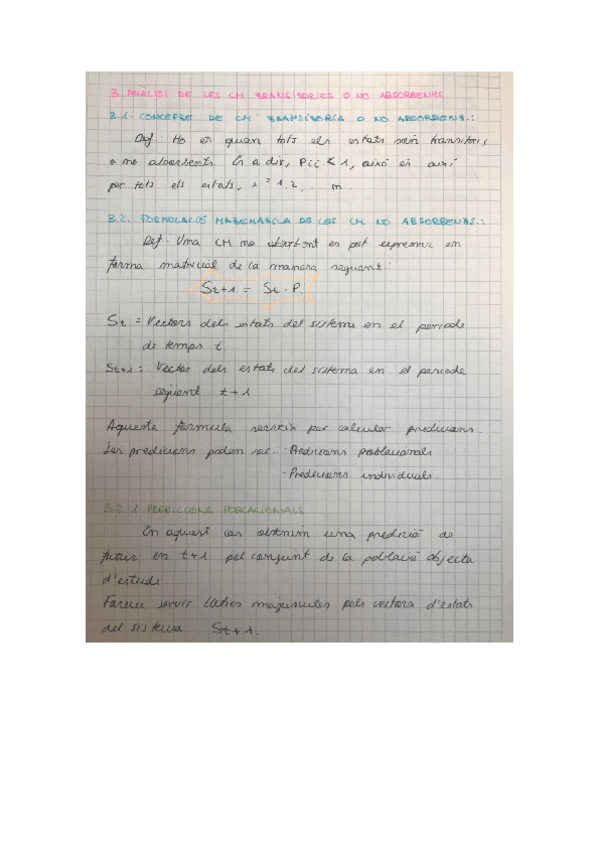 3. ANÀLISI DE LES CM TRANSITÒRIES O NO ABSORBENTS
3.1. CONCEPTE DE CM TRANSITÒRIA O NO ABSORBENTS.:
Def: Ho és quan tots els estats són transitoris
o no absorbents. És a dir, Pii < 1, això és així
per tots els estats, i = 1, 2, ... m.
3.2. FORMULACIÓ MATEMÀTICA DE LES CM NO ABSORBENTS.:
Def. Una CM no absorbent es pot expressar en
forma matricial de la manera següent:
St+1 = St · P.
St = Vectors dels estats del sistema en el període
de temps t
St+1: Vector dels estats del sistema en el període
següent t+1
Aquesta fórmula serveix per calcular prediccions.
Les prediccions poden ser: - Prediccions poblacionals
- Prediccions individuals
3.2.1 PREDICCIONS POBLACIONALS
En aquest cas obtenim una predicció de
futur en t+1 pel conjunt de la població objecte
d'estudi.
Farem servir lletres majúscules pels vectors d'estats
del sistema St+1.